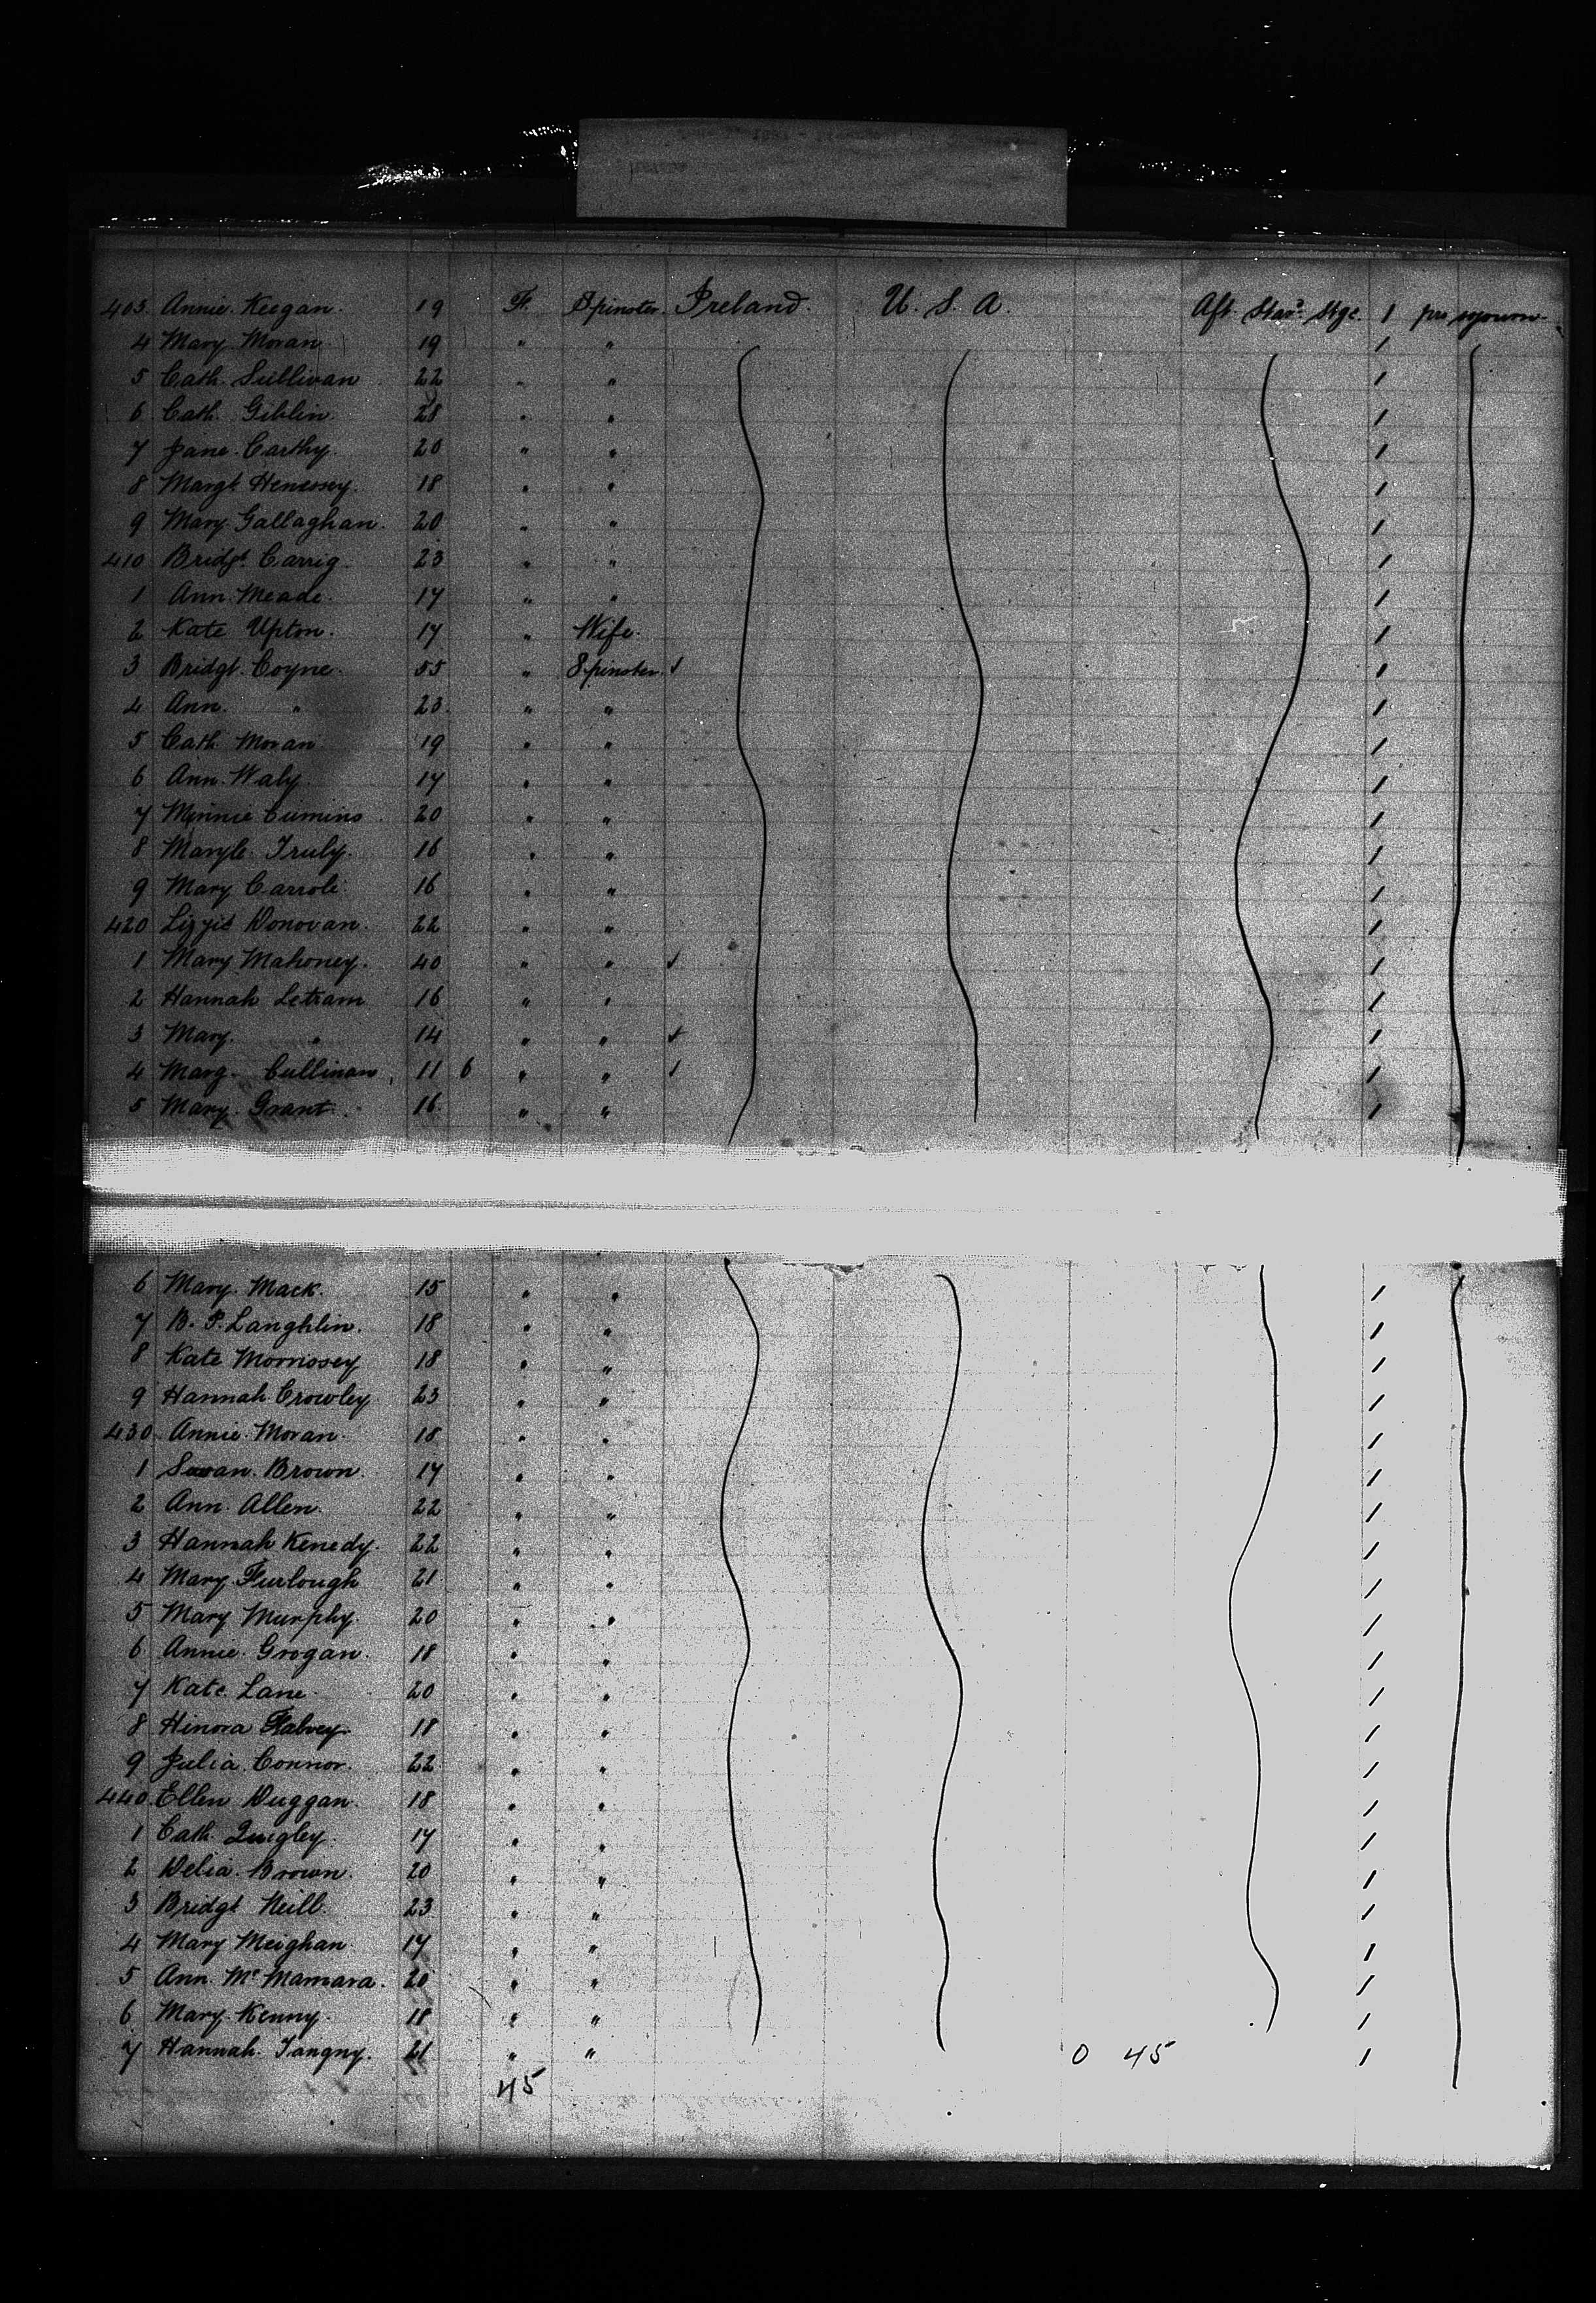 403 Annie Keegan. 19 F. Spinster Ireland. U. S. A. Aft. Star. Stge. 1
4 Mary Moran 19 " " 1
5 Cath. Sullivan 22 " " 1
6 Cath. Giblin. 28 " " 1
7 Jane Carthy. 20 " " 1
8 Margt. Henessey. 18 " " 1
9 Mary Gallaghan. 20 " " 1
410 Bridgt. Carrig. 23 " " 1
1 Ann Meade. 17 " " 1
2 Kate Upton. 17 " Wife. 1
3 Bridgt. Coyne. 55 " Spinster. 1
4 Ann. " 23 " " 1
5 Cath. Moran 19 " " 1
6 Ann Waly. 17 " " 1
7 Minnie Cumins 20 " " 1
8 Truly. 16 " " 1
9 Mary Carrole 16 " " 1
420 Lizzie Donovan. 22 " " 1
1 Mary Mahoney. 40 " " 1
2 Hannah 16 " " 1
3 Mary. " 14 " " 1
4 Marg. Cullinan 11 6 " " 1
5 Mary. Grant. 16 " " 1
6 Mary. Mack. 15 " " 1
7 B. P. Langhlin. 18 " " 1
8 Kate Morrissey 18 " " 1
9 Hannah Crowley 23 " " 1
430 Annie Moran. 18 " " 1
1 Susan Brown. 17 " " 1
2 Ann. Allen. 22 " " 1
3 Hannah Kenedy. 22 " " 1
4 Mary Furlough 21 " " 1
5 Mary Murphy 20 " " 1
6 Annie Grogan. 18 " " 1
7 Kate Lane 20 " " 1
8 Hinora 18 " " 1
9 Julia Connor. 22 " " 1
440 Ellen Duggan. 18 " " 1
1 Cath. Quigley. 17 " " 1
2 Delia Brown. 20 " " 1
3 Bridgt Neill. 23 " " 1
4 Mary Meighan 17 " " 1
5 Ann. Mc Mamara. 20 " " 1
6 Mary Kenny. 18 " " 1
7 Hannah Tangny. 21 " " 0 45 1
45